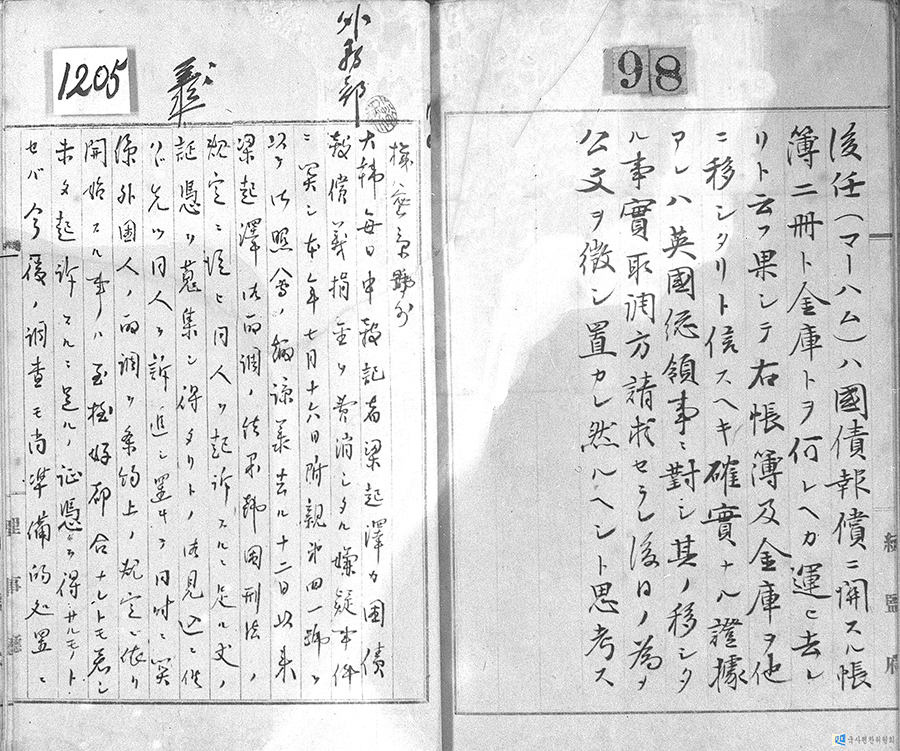 98
後任(マーハム)ハ國債報償ニ関スル帳
簿二冊ト金庫トヲ何レヘカ運ヒ去レ
リト云フ果シテ右帳簿及金庫ヲ他
ニ移シタリト信スヘキ確實ナル證據
アレハ英國総領事ニ對シ其ノ移シタ
ル事實取調方請求セラレ後日ノ為メ
公文ヲ徴シ置カレ然ルヘシト思考ス
統監府
1205
外務部
大韓毎日申報記者梁起澤カ国債
報償義捐金ヲ費消シタル嫌疑事件
ニ関シ本年七月十六日附親第四一號ヲ
以テ御照会ノ趣諒承去ル十二日以来
梁起澤御取調ノ結果韓国刑法ノ
規定ニ従ヒ同人ヲ起訴スルニ足ル丈ノ
証憑ヲ蒐集シ得タリトノ御見込ニ候
ハバ先ツ同人ヲ訴追シ置キテ同時ニ関
係外国人ノ取調ヲ条約上ノ規定ニ依リ
開始スル事ハ至極好都合ナレトモ若シ
未タ起訴スルニ足ルノ証憑ヲ得サルモノト
セバ今後ノ調査モ尚準備的処置ニ
理事廳
국사편찬위원회